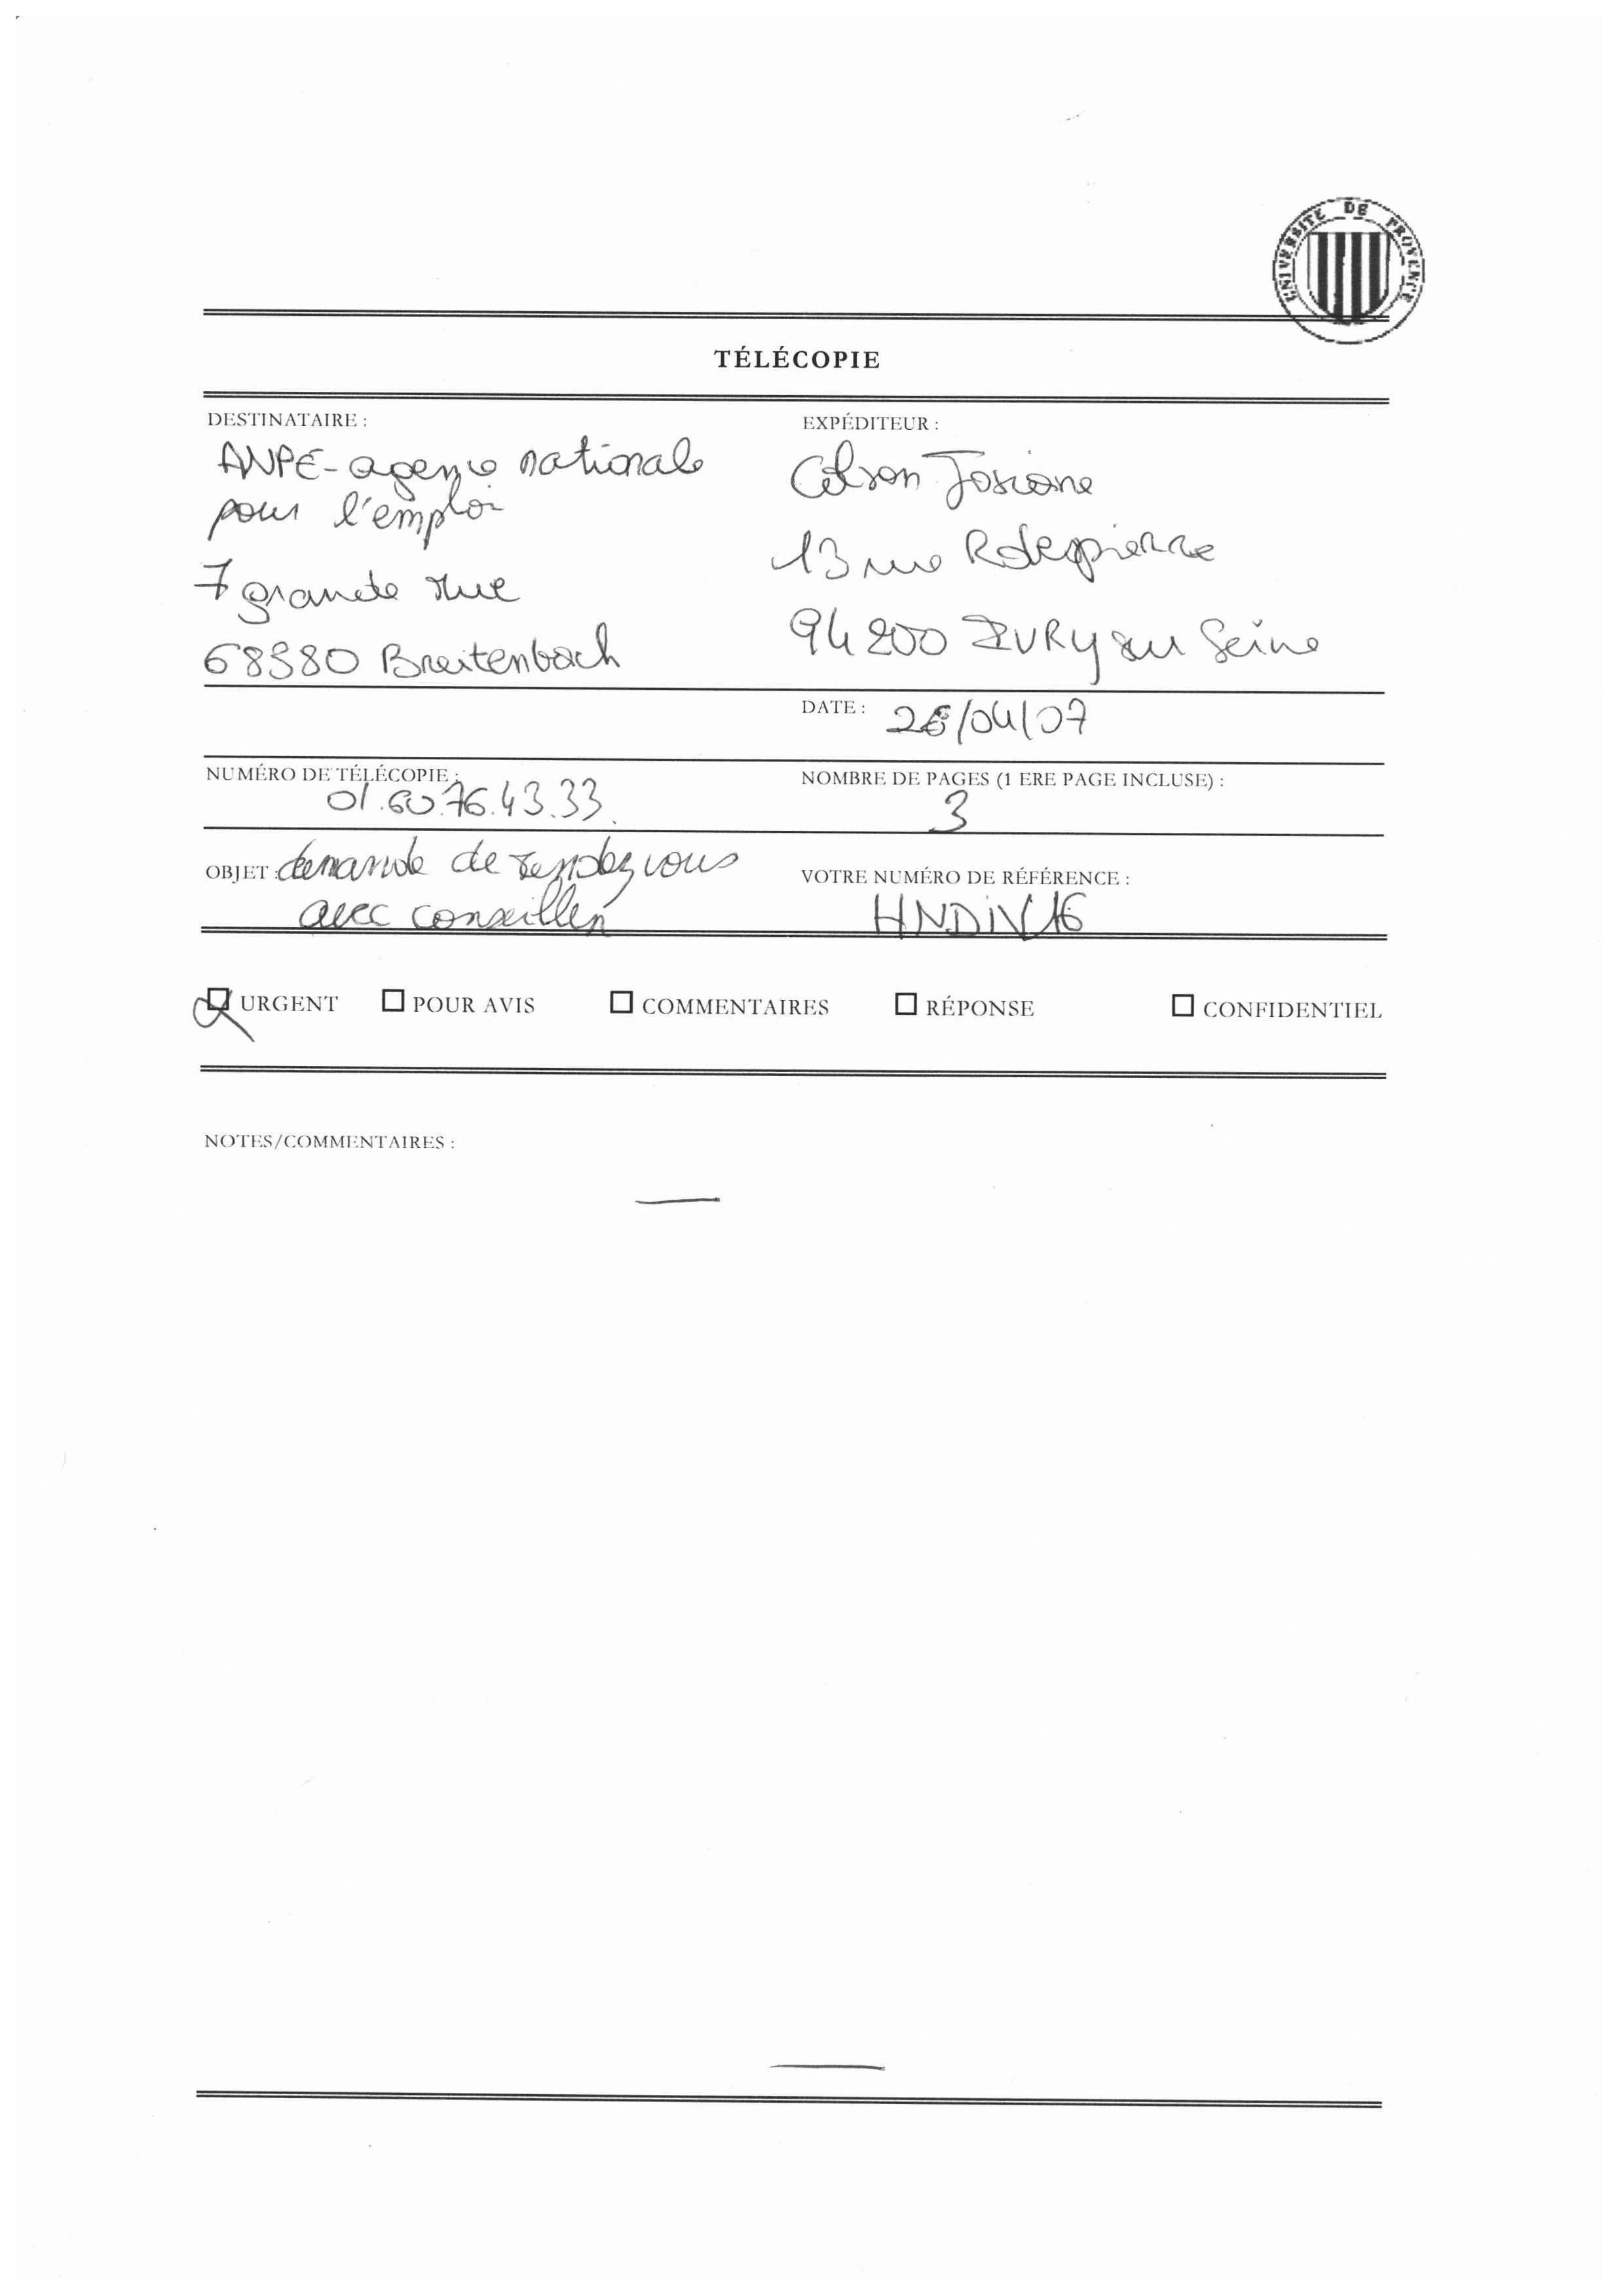 UNIVERSITE DE PROVENCE
TÉLÉCOPIE
DESTINATAIRE :
ANPE - agence nationale
pour l'emploi
7 grande rue
68380 Breitenbach
EXPÉDITEUR :
Colson Josiane
13 rue Robespierre
94200 IVRY sur Seine
DATE : 26/04/07
NUMÉRO DE TÉLÉCOPIE :
01.60.76.43.33.
NOMBRE DE PAGES (1 ERE PAGE INCLUSE) :
3
OBJET : demande de rendez vous
avec conseiller
VOTRE NUMÉRO DE RÉFÉRENCE :
HNDIV16
URGENT POUR AVIS COMMENTAIRES RÉPONSE CONFIDENTIEL
NOTES/COMMENTAIRES :